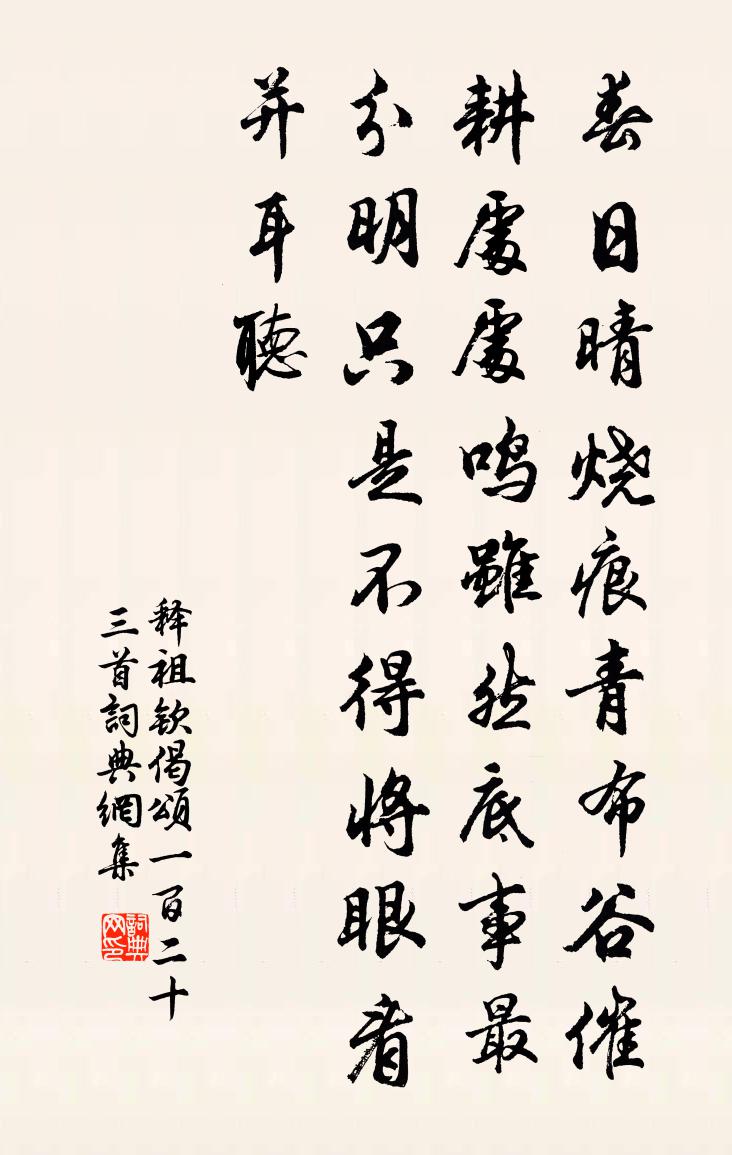 春日晴烧痕青布谷催
耕處處鸣雖然底事最
分明只是不得将眼看
并耳聽
释祖钦偈頌一百二十
三首詞典網集
詞典网印